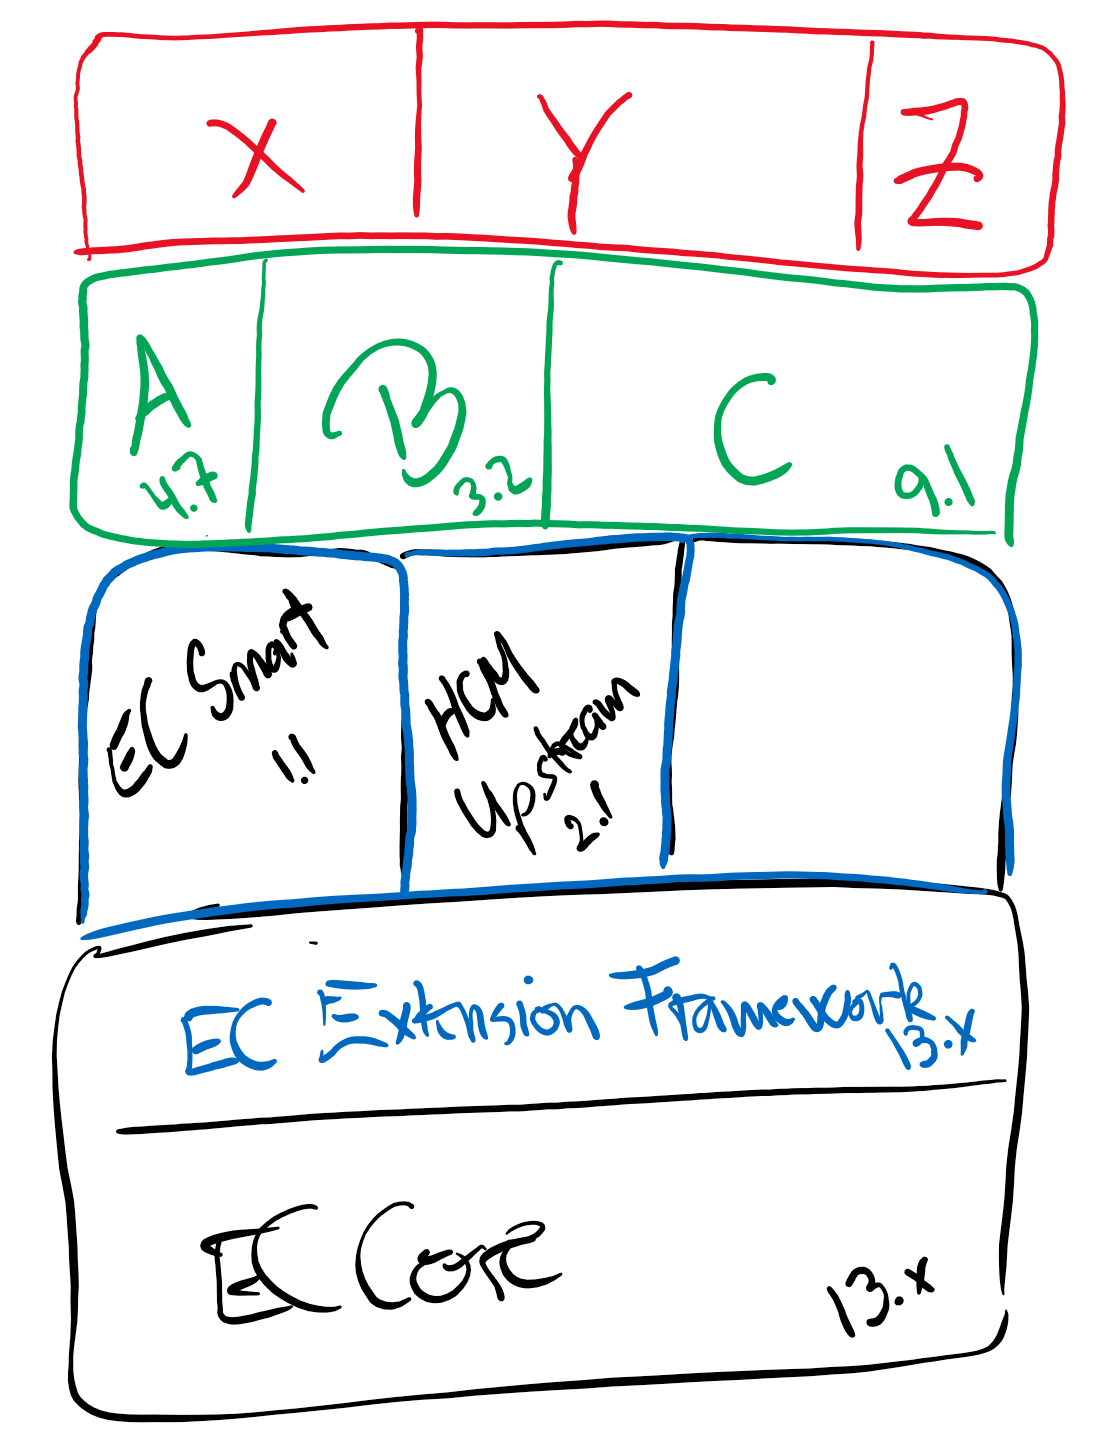 X Y Z
A B C
4.7 3.2 9.1
EC Smart
1.1
HCM
Upstream
2.1
EC Extension Framework
13.x
EC Core
13.x